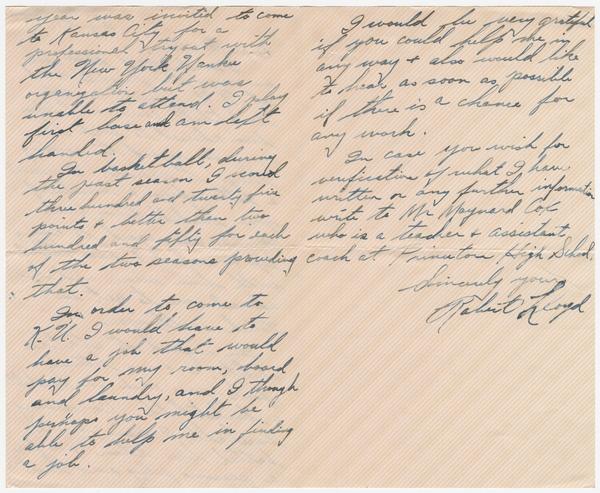 year was invited to come
to Kansas City for a
professional tryout with
the New York Yankee
organization but was
unable to attend. I play
first base and am left
handed.
In basketball, during
the past season I scored
three hundred and twenty five
points & better than two
hundred and fifty for each
of the two seasons preceeding
that.
In order to come to
K.U. I would have to
have a job that would
pay for my room, board
and laundry, and I though
perhaps you might be
able to help me in finding
a job.
I would be very grateful
if you could help me in
any way & also would like
to hear as soon as possible
if there is a chance for
any work.
In case you wish for
verification of what I have
written or any further information
write to Mr Maynard Cox
who is a teacher & assistant
coach at Princeton High School.
Sincerely yours
Robert Lloyd